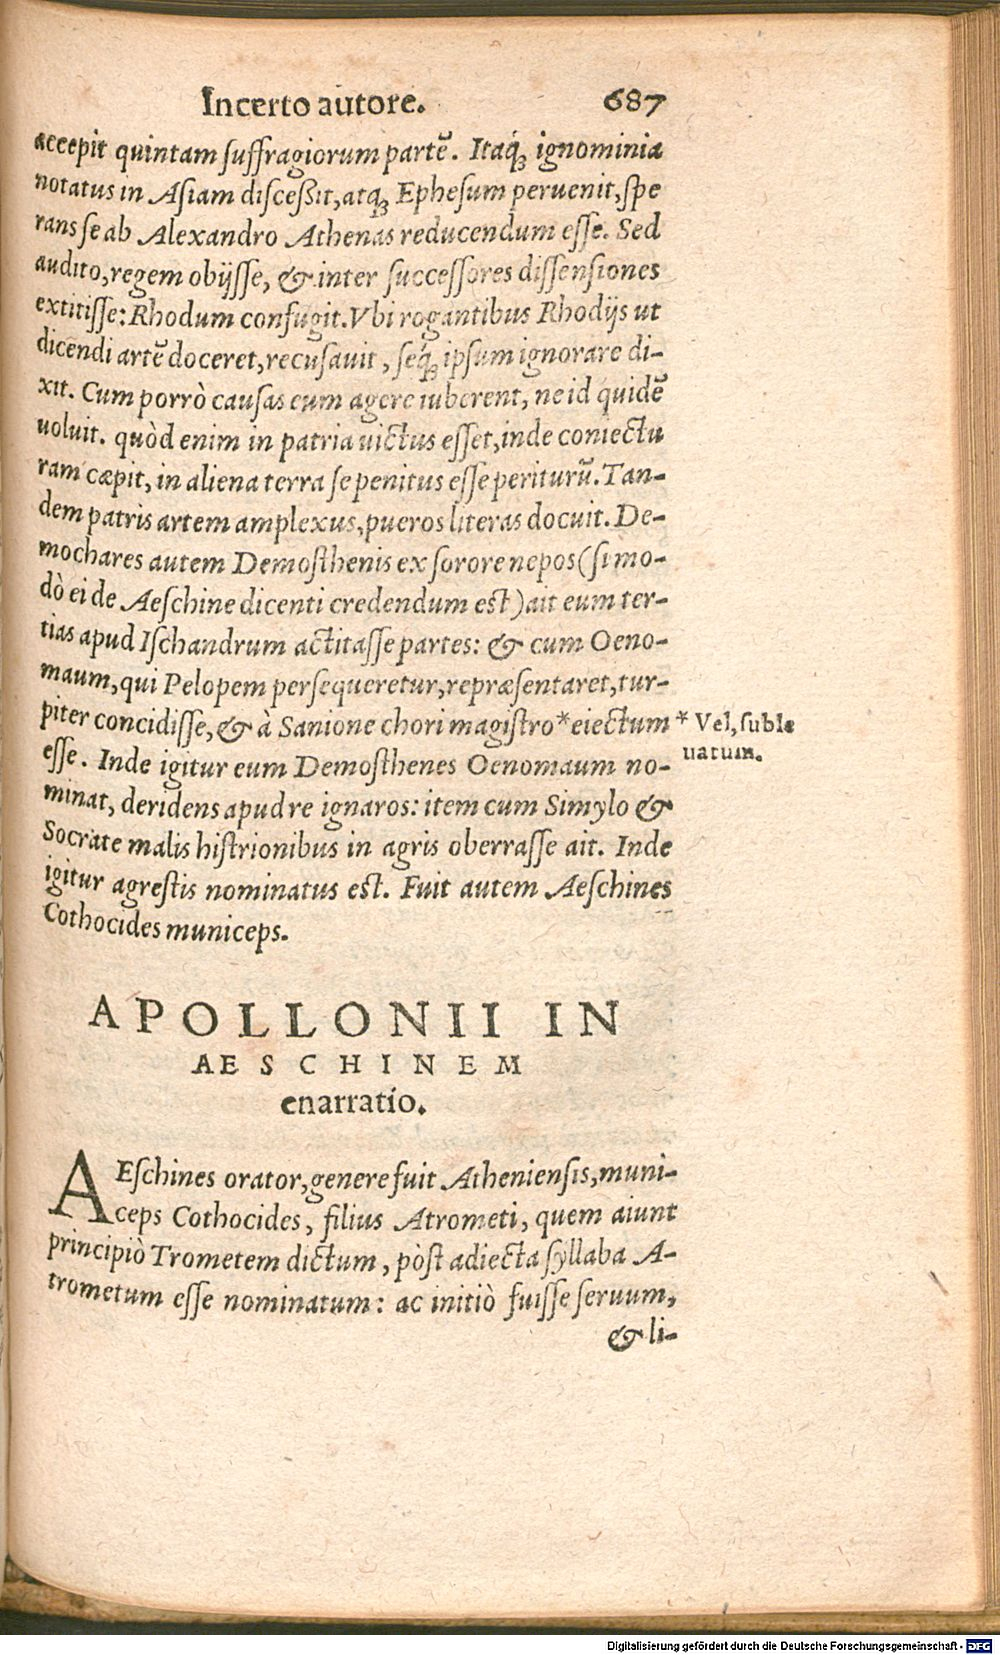 Incerto autore. 687
accepit quintam ſuffragiorum partē. Itaq́ꝫ ignominia
notatus in Aſiam diſceßit, atqꝫ Epheſum peruenit, ſpe
rans ſe ab Alexandro Athenas reducendum eſſe. Sed
audito, regem obijſſe, & inter ſucceſſores diſſenſiones
extitiſſe: Rhodum confugit. Vbi rogantibus Rhodijs ut
dicendi artē doceret, recuſauit, ſeq́ꝫ ipſum ignorare di-
xit. Cum porrò cauſas eum agere iuberent, ne id quidē
uoluit. quòd enim in patria uictus eſſet, inde coniectu
ram cæpit, in aliena terra ſe penitus eſſe periturū. Tan-
dem patris artem amplexus, pueros literas docuit. De-
mochares autem Demoſthenis ex ſorore nepos (ſi mo-
dò ei de Aeſchine dicenti credendum eſt) ait eum ter-
tias apud Iſchandrum actitaſſe partes: & cum Oeno-
maum, qui Pelopem perſequeretur, repræſentaret, tur-
piter concidiſſe, & à Sanione chori magiſtro* eiectum
* Vel, ſuble
uatum.
eſſe. Inde igitur eum Demoſthenes Oenomaum no-
minat, deridens apud re ignaros: item cum Simylo &
Socrate malis hiſtrionibus in agris oberraſſe ait. Inde
igitur agreſtis nominatus eſt. Fuit autem Aeſchines
Cothocides municeps.
APOLLONII IN
AESCHINEM
enarratio.
AEſchines orator, genere fuit Athenienſis, muni-
ceps Cothocides, filius Atrometi, quem aiunt
principiò Trometem dictum, pòſt adiecta ſyllaba A-
trometum eſſe nominatum: ac initiò fuiſſe ſeruum,
& li-
Digitalisierung gefördert durch die Deutsche Forschungsgemeinschaft - DFG